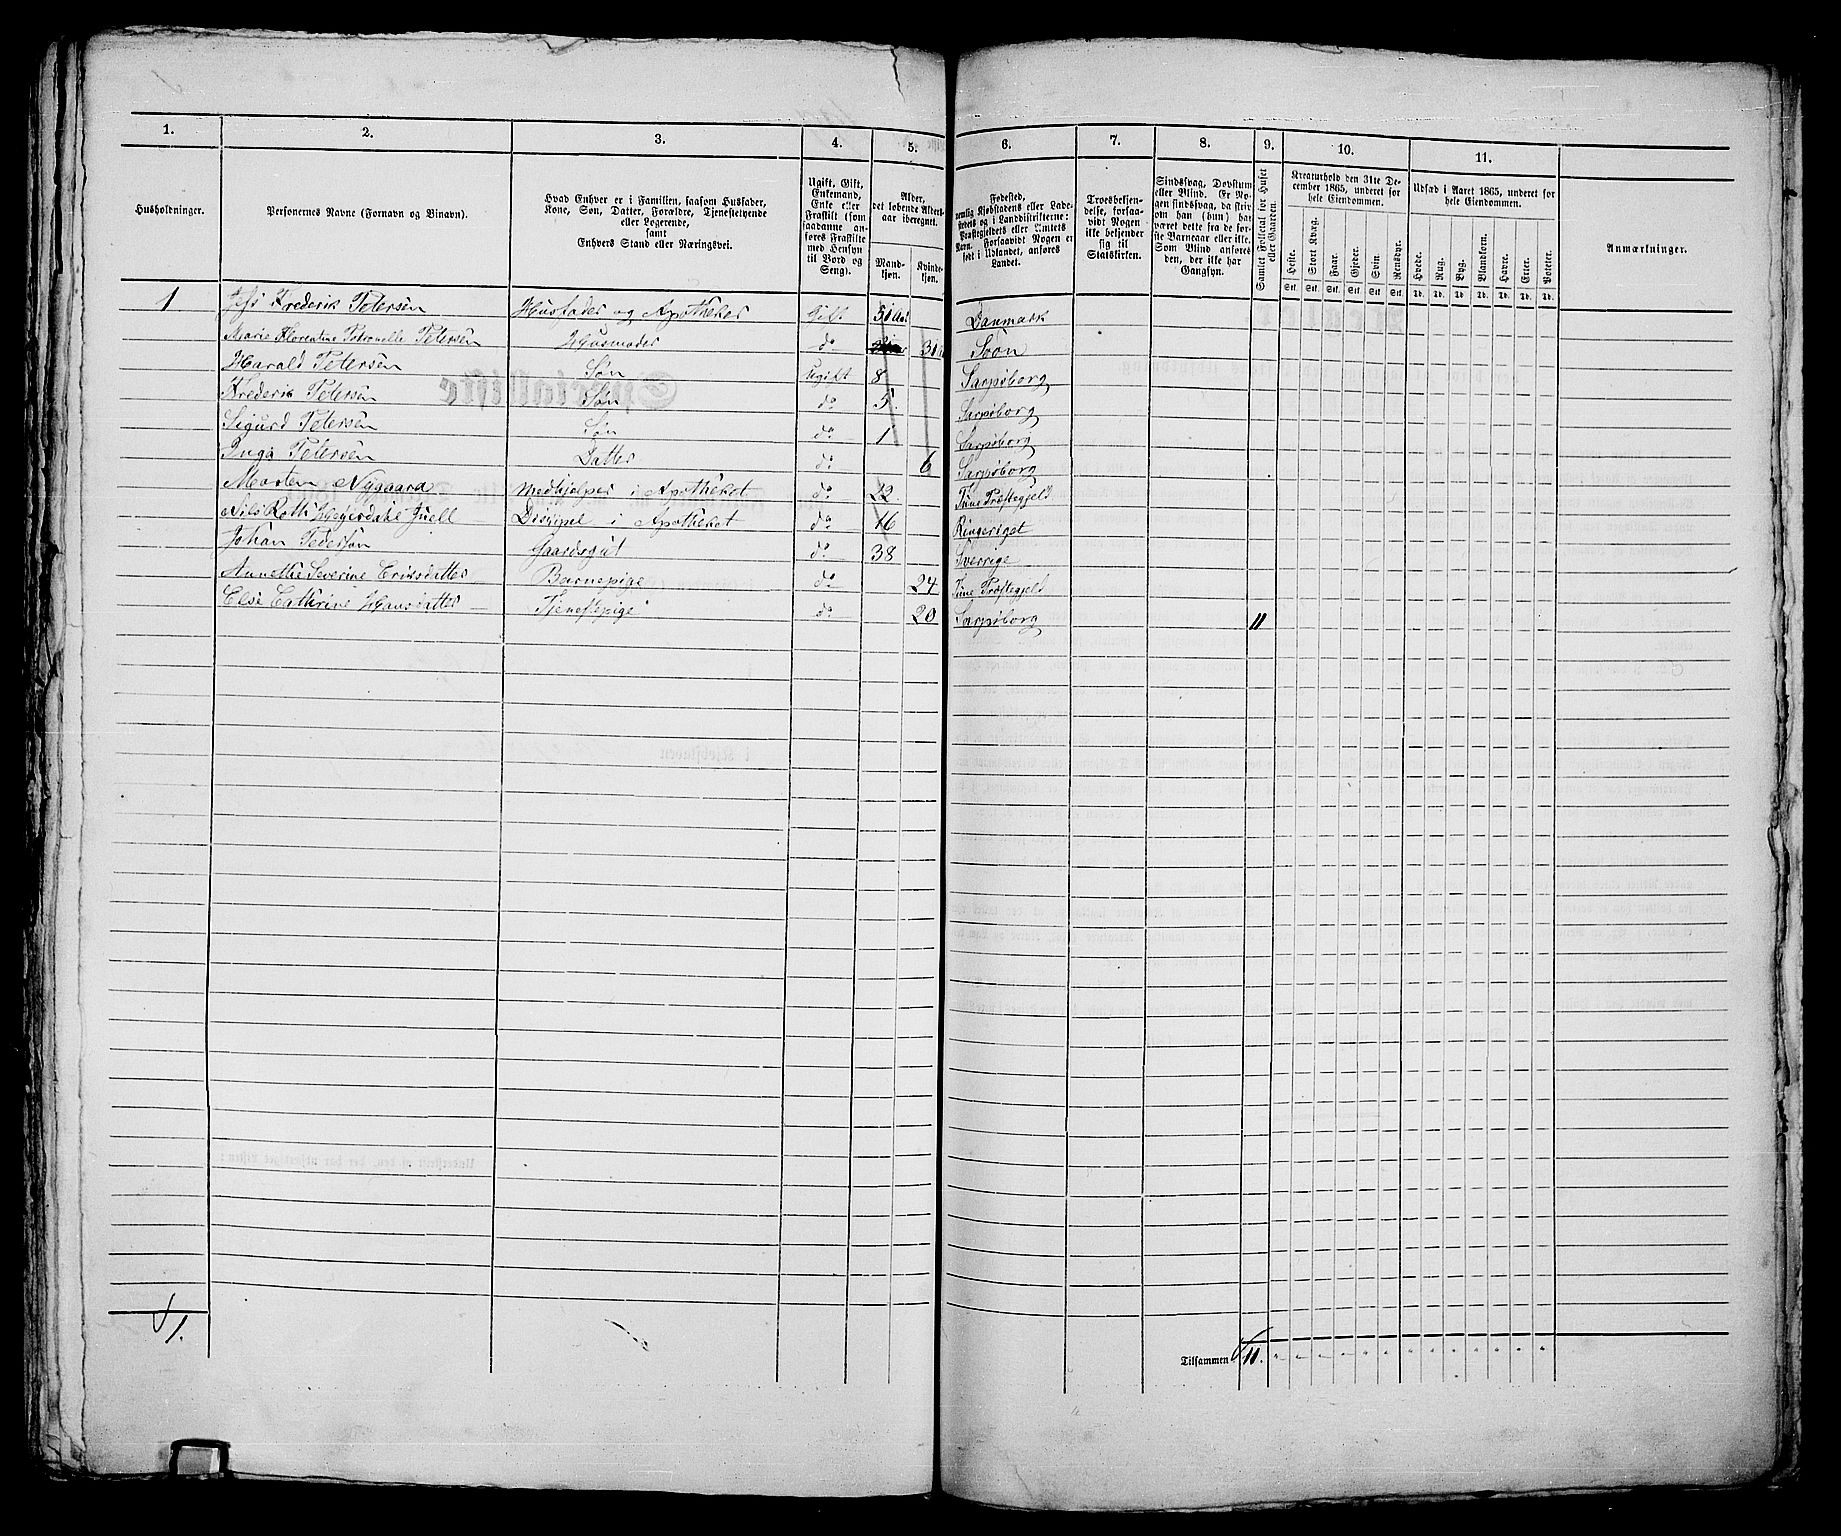 1. 2. 3. 4. 5. 6. 7. 8. 9. 10. 11.
Husholdninger.
Personernes Navne (Fornavn og Binavn).
Hvad Enhver er i Familien, saasom Husfader,
Kone, Søn, Datter, Forældre, Tjenestetyende
eller Logerende,
samt
Enhvers Stand eller Næringsvei.
Ugift, Gift,
Enkemand,
Enke eller
Fraskilt (som
saadanne an-
føres Fraskilte
med Hensyn
til Bord og
Seng).
Alder,
det løbende Alders-
aar iberegnet.
Mand-
kjøn.
Kvinde-
kjøn.
Fødested,
nemlig Kjøbstadens eller Lade-
stedets og i Landdistrikterne:
Præstegjeldets eller Amtets
Navn. Forsaavidt Nogen er
født i Udlandet, anføres
Landet.
Troesbekjen-
delse, forsaa-
vidt Nogen
ikke bekjender
sig til
Statskirken.
Sindssvag, Døvstum
eller Blind. Er No-
gen sindssvag, da skri-
ves om han (hun) har
været dette fra de før-
ste Barneaar eller ikke.
Som Blind anføres
den, der ikke har
Gangsyn.
Samlet Folketal for Huset
eller Gaarden.
Kreaturhold den 31te De-
cember 1865, underet for
hele Eiendommen.
Heste. Stort Kvæg. Faar. Gjeder. Svin. Rensdyr.
Stk. Stk. Stk. Stk. Stk. Stk.
Udsæd i Aaret 1865, underet for
hele Eiendommen.
Hvede. Rug. Byg. Blandkorn. Havre. Erter. Poteter.
Td. Td. Td. Td. Td. Td. Td.
Anmærkninger.
1 Frederik Petersen Husfader og Apotheker Gift 31 Aar Danmark
Marie Florentine Petronelle Petersen Husmoder do 31 Soon
Harald Petersen Søn Ugift 8 Sarpsborg
Frederik Petersen Søn do 5 Sarpsborg
Sigurd Petersen Søn do 1 Sarpsborg
Inga Petersen Datter do 6 Sarpsborg
Morten Nygaard Medhjelper i Apotheket do 22 Tune Præstegjeld
Nils Roth Heyerdahl Juell Discipel i Apotheket do 16 Ringeriget
Johan Pedersøn Gaardsgut do 38 Sverrige
Anne Severine Eriksdatter Barnepige do 24 Tune Præstegjeld
Else Cathrine Hansdatter Tjenestepige do 20 Sarpsborg 11
1.
Tilsammen 11.